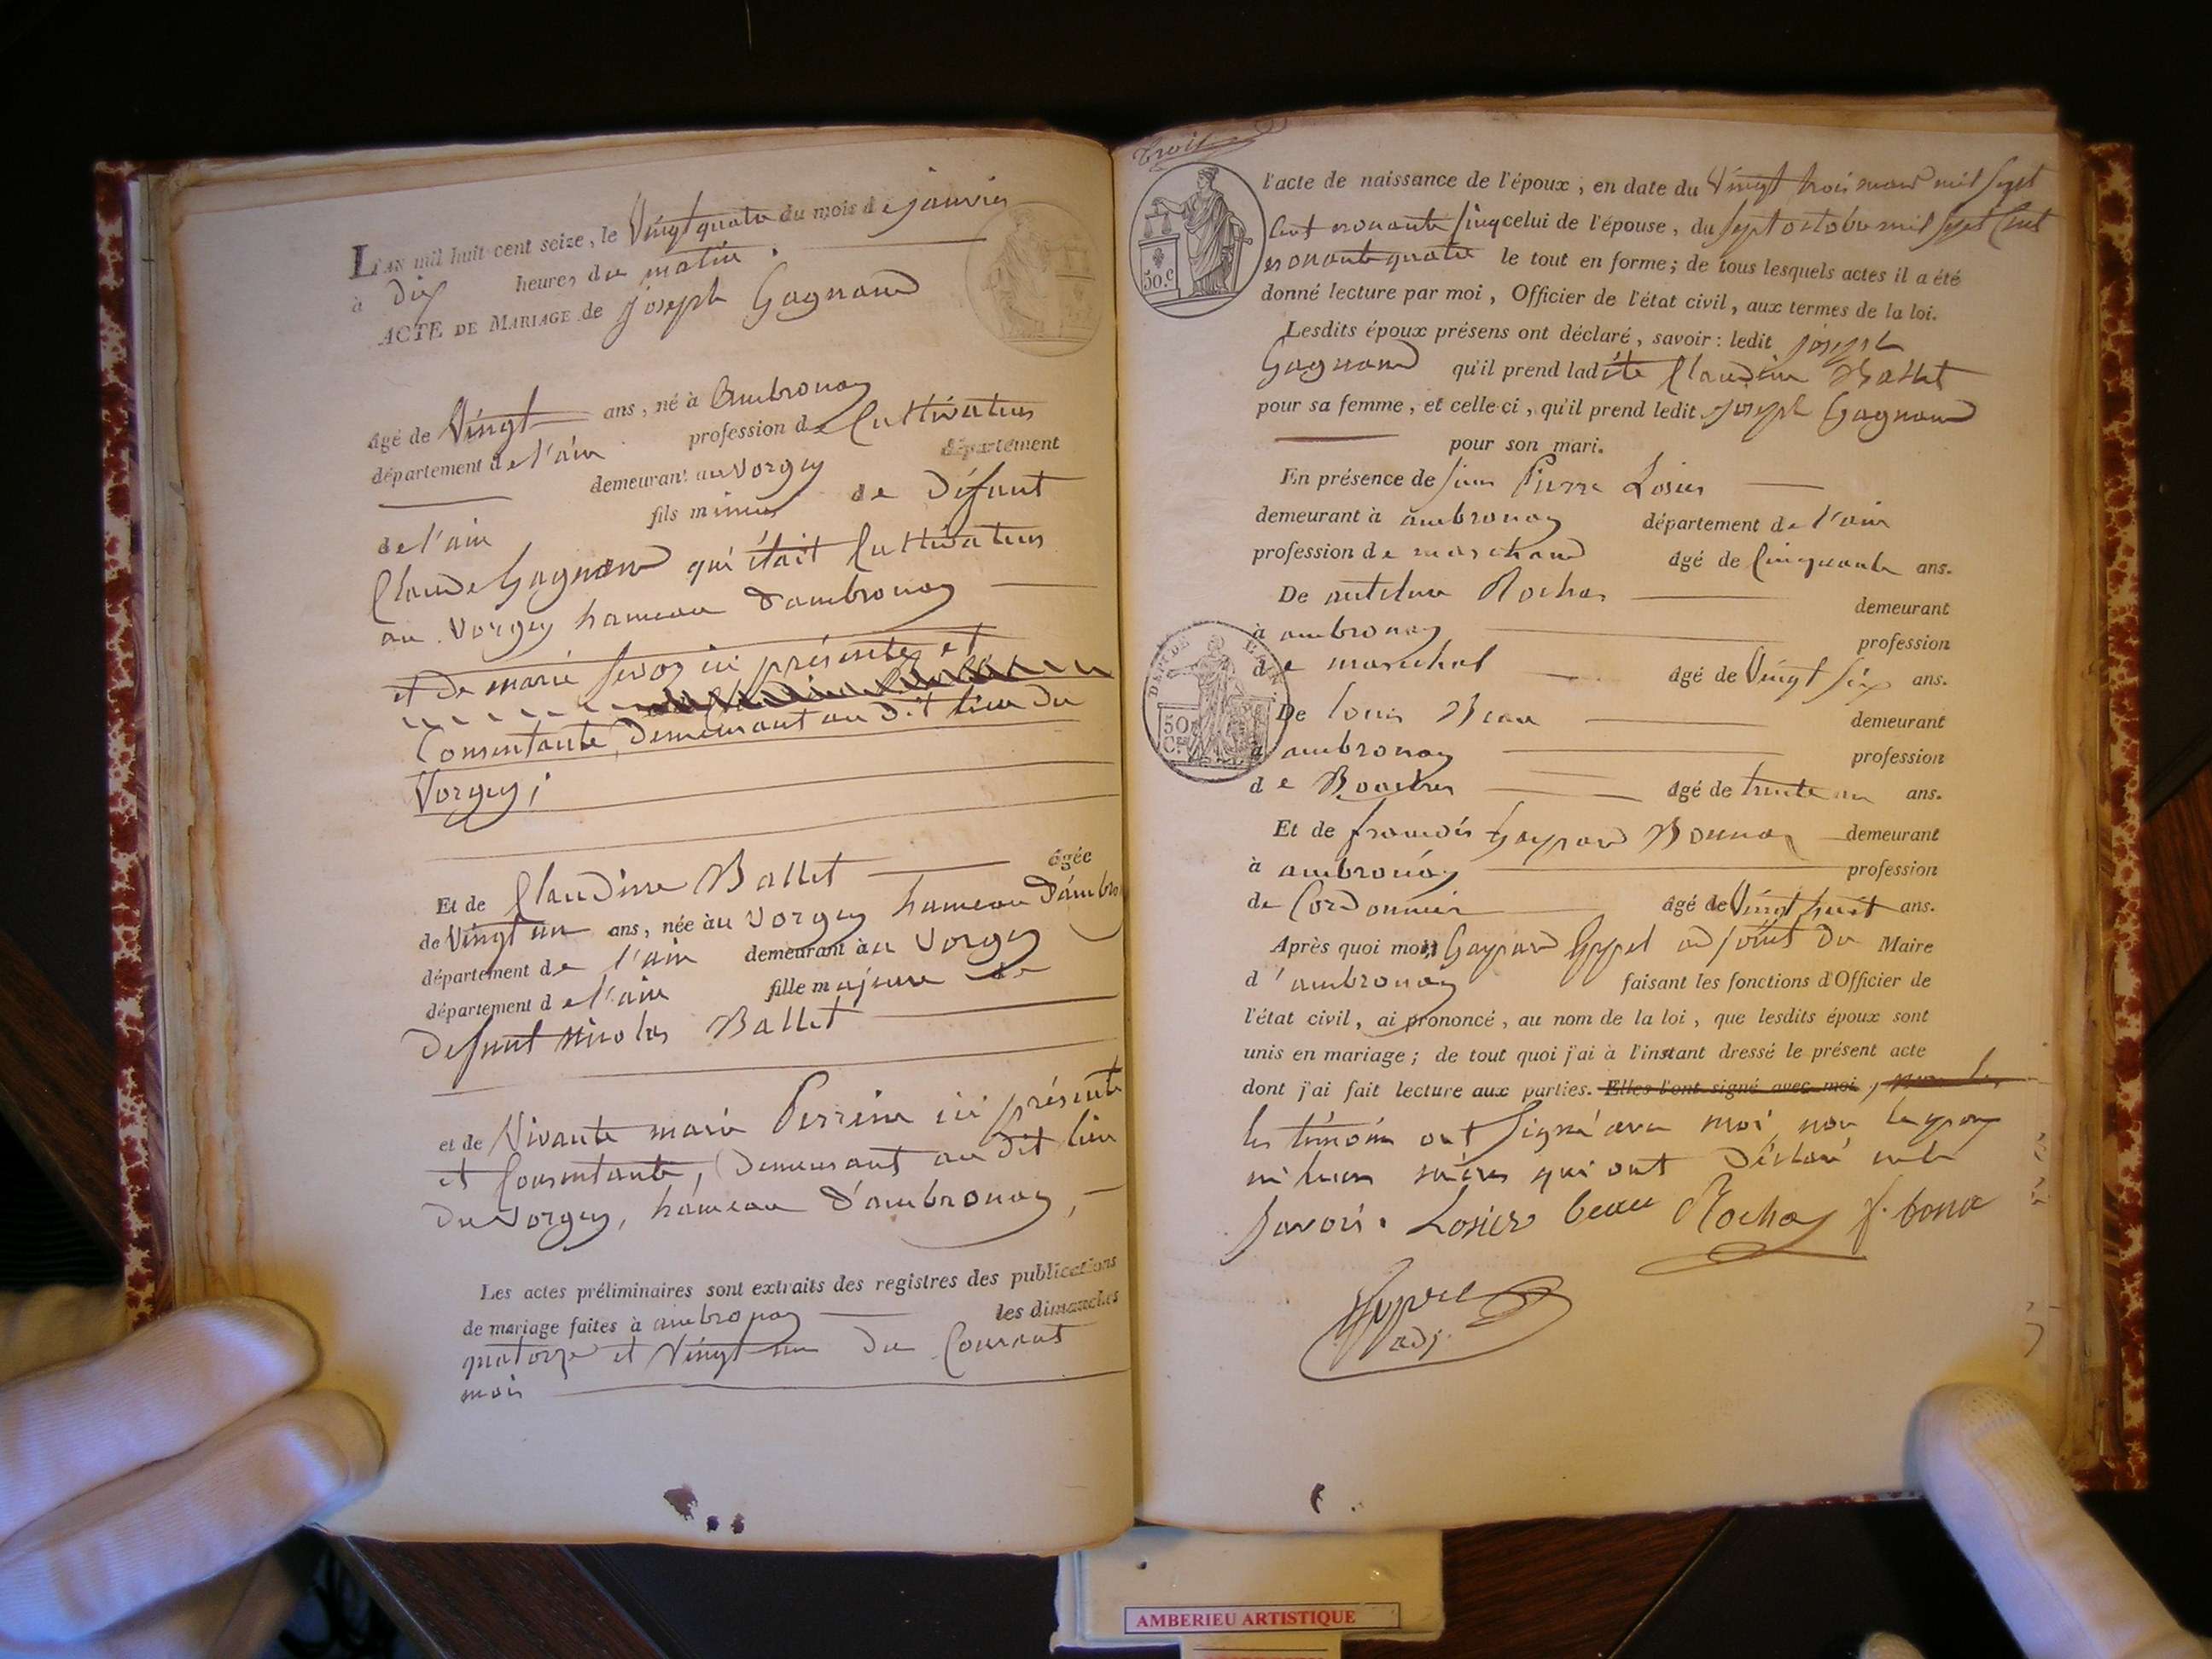 L'AN mil huit cent seize, le Vingt quatre du mois de janvier
à Dix heures du matin.
ACTE DE MARIAGE de joseph Gagnand
âgé de Vingt ans, né à Ambronay
département de l'ain profession de Cultivateur
demeurant au Vorgey département
de l'ain fils mineur de Défunt
Claude Gagnand qui était Cultivateur
au Vorgey hameau d'ambronay
et De marie ici présente et
Consentante, Demeurant au Dit lieu Du
Vorgey;
Et de Claudine Ballet âgée
de Vingt un ans, née au Vorgey hameau d'ambro
département de l'ain demeurant au Vorgey
département de l'ain fille majeure de
Defunt Nicolas Ballet
et de Vivante marie Perrine ici présente
et Consentante, Demeurant au Dit lieu
Du Vorgey, hameau d'ambronay,
Les actes préliminaires sont extraits des registres des publications
de mariage faites à ambronay les dimanches
quatorze et Vingt un Du Courant
mois
Trois
50.c
l'acte de naissance de l'époux, en date du Vingt trois mars mil sept
Cent nonante Cinq celui de l'épouse, du Sept octobre mil Sept Cent
nonante quatre le tout en forme; de tous lesquels actes il a été
donné lecture par moi, Officier de l'état civil, aux termes de la loi.
Lesdits époux présens ont déclaré, savoir: ledit joseph
Gagnand qu'il prend ladite Claudine Ballet
pour sa femme, et celle-ci, qu'il prend ledit joseph Gagnand
pour son mari.
En présence de Jean Pierre Losier
demeurant à ambronay département de l'ain
profession de marchand âgé de Cinquante ans.
De antelme Rochas demeurant
à ambronay profession
de marechal âgé de Vingt Six ans.
DEPT DE L'AIN
50 CES
De louis Beau demeurant
à ambronay profession
de Boucher âgé de trente un ans.
Et de francois Gaspard Bonnaz demeurant
à ambronay profession
de Cordonnier âgé de Vingt huit ans.
Après quoi moi, Gaspard adjoint Du Maire
d'ambronay faisant les fonctions d'Officier de
l'état civil, ai prononcé, au nom de la loi, que lesdits époux sont
unis en mariage; de tout quoi j'ai à l'instant dressé le présent acte
dont j'ai fait lecture aux parties. Elles l'ont signé avec moi,
les témoins ont Signé avec moi non les
ni leurs mères qui ont Déclaré ne le
Savoir. Losier beau Rochas f. bona
adj.
AMBERIEU ARTISTIQUE